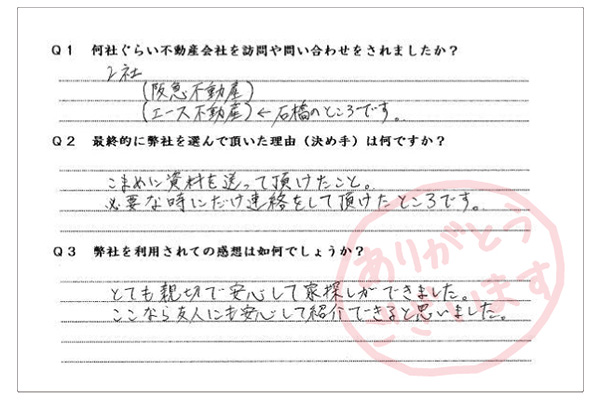 Q1 何社ぐらい不動産会社を訪問や問い合わせをされましたか？
2社
(阪急不動産)
(エース不動産)←石橋のところです。
Q2 最終的に弊社を選んで頂いた理由（決め手）は何ですか？
こまめに資料を送って頂けたこと。
必要な時にだけ連絡をして頂けたところです。
Q3 弊社を利用されての感想は如何でしょうか？
とても親切で安心して家探しができました。
ここなら友人にも安心して紹介できると思いました。
ありがとう
ございます